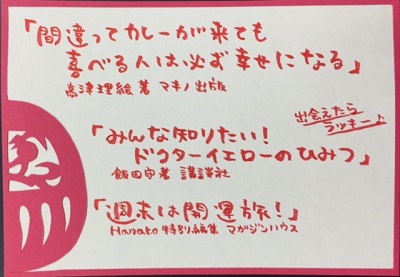 「間違ってカレーが来ても
喜べる人は必ず幸せになる」
高津理絵 著 マキノ出版
出会えたら
ラッキー♪
「みんな知りたい!
ドクターイエローのひみつ」
飯田守著 講談社
「週末は開運旅!」
Hanako特別編集 マガジンハウス